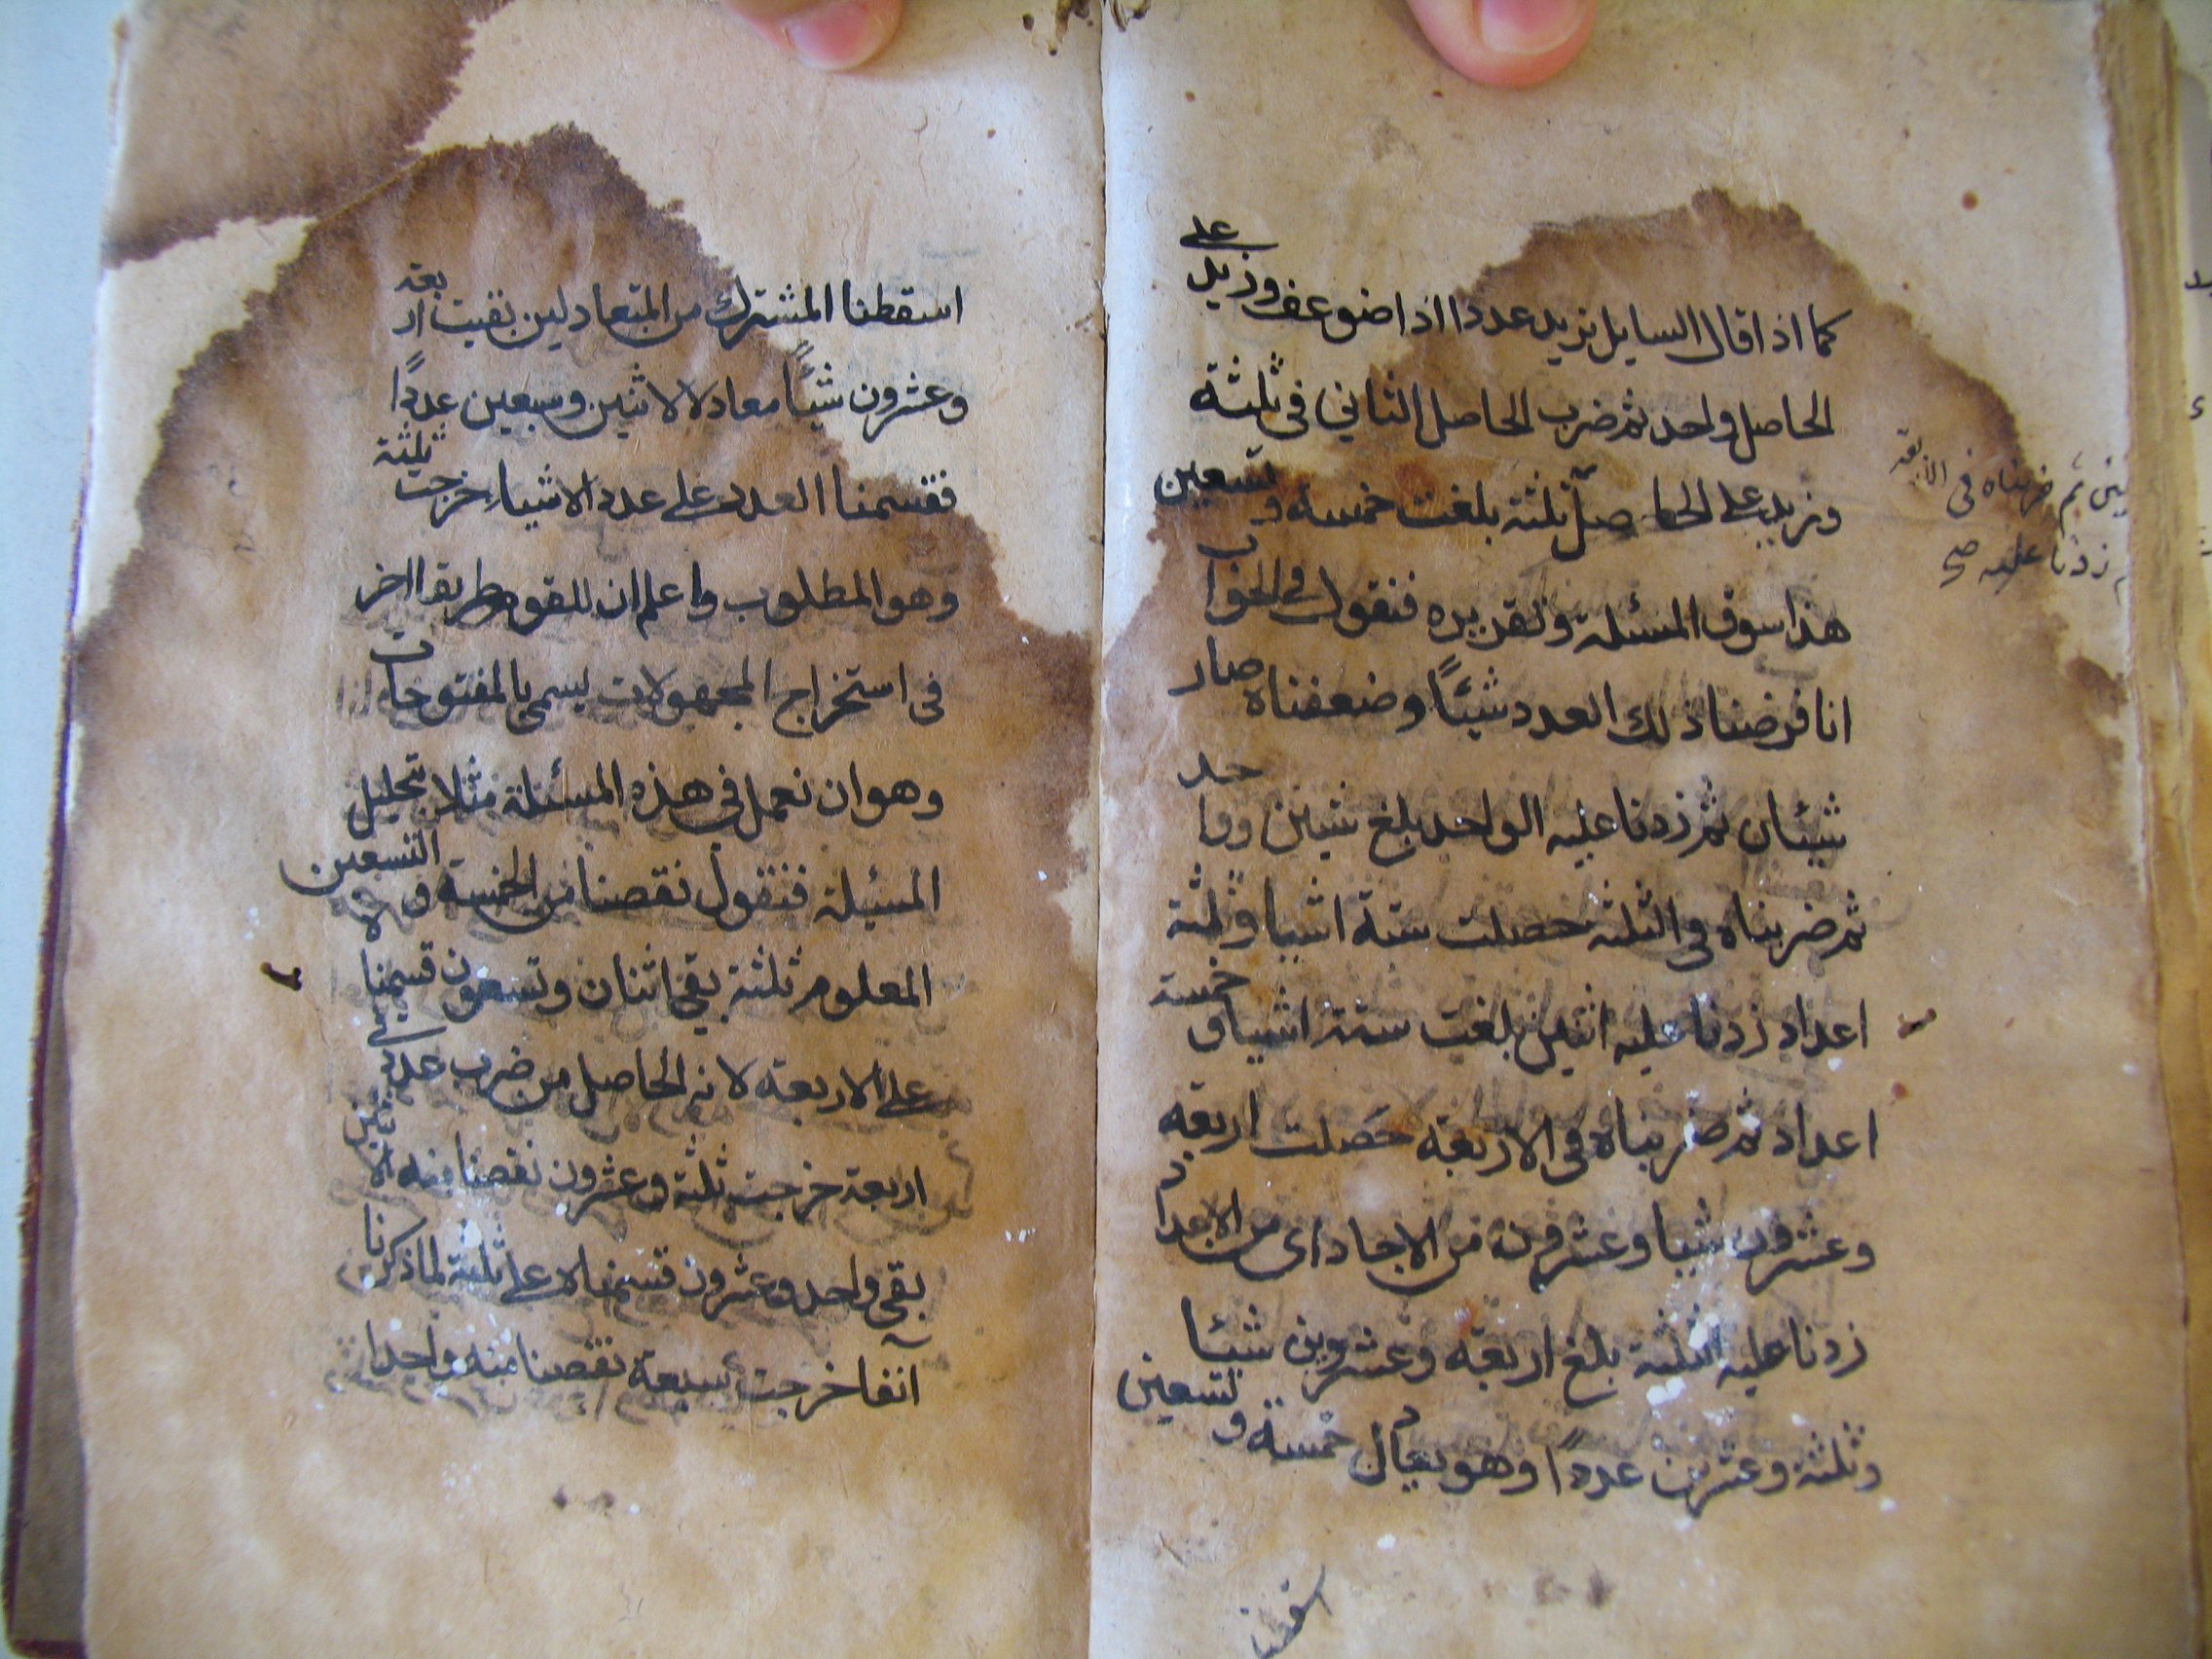 كما اذا قال السايل نريد عددا اذا ضوعف وزيد على
الحاصل واحد ثم ضرب الحاصل الثاني في ثلثة
وزيد على الحاصل ثلثة بلغت خمسة وتسعين
هذا سوق المسئلة وتقريره فنقول في الجواب
انا فرضنا ذلك العدد شيئًا وضعفناه صار
شيئان ثم زدنا عليه الواحد بلغ شيئين وواحد
ثم ضربناه في الثلثة حصلت ستة اشيا وثلثة
اعداد زدنا عليه اثنين بلغت ستة اشيا وخمسة
اعداد ثم ضربناه في الاربعة حصلت اربعة
وعشرون شيا وعشرون من الاحاد اى من الاعداد
زدنا عليه الثلثة بلغ اربعة وعشرين شيئا
وثلثة وعشرين عددًا وهو يعادل خمسة وتسعين
ثم ضربناه فى الاربعة
زدنا عليه صح
اسقطنا المشترك من المتعادلين بقيت اربعة
وعشرون شيئًا معادلا لاثنين وسبعين عددًا
فقسمنا العدد على عدد الاشياء خرجت ثلثة
وهو المطلوب واعلم ان للقوم طريقا اخر
فى استخراج المجهولات يسمى بالمفتوحات
وهو ان نعمل فى هذه المسئلة مثلا بتحليل
المسئلة فنقول نقصنا من الخمسة والتسعين
المعلوم ثلثة بقى اثنان وتسعون قسمنا
على الاربعة لانه الحاصل من ضرب عدد فى
اربعة خرجت ثلثة وعشرون نقصنا منه الاثنين
بقى واحد وعشرون قسمناه على ثلثة لما ذكرنا
آنفا خرجت سبعة نقصنا منه واحدا